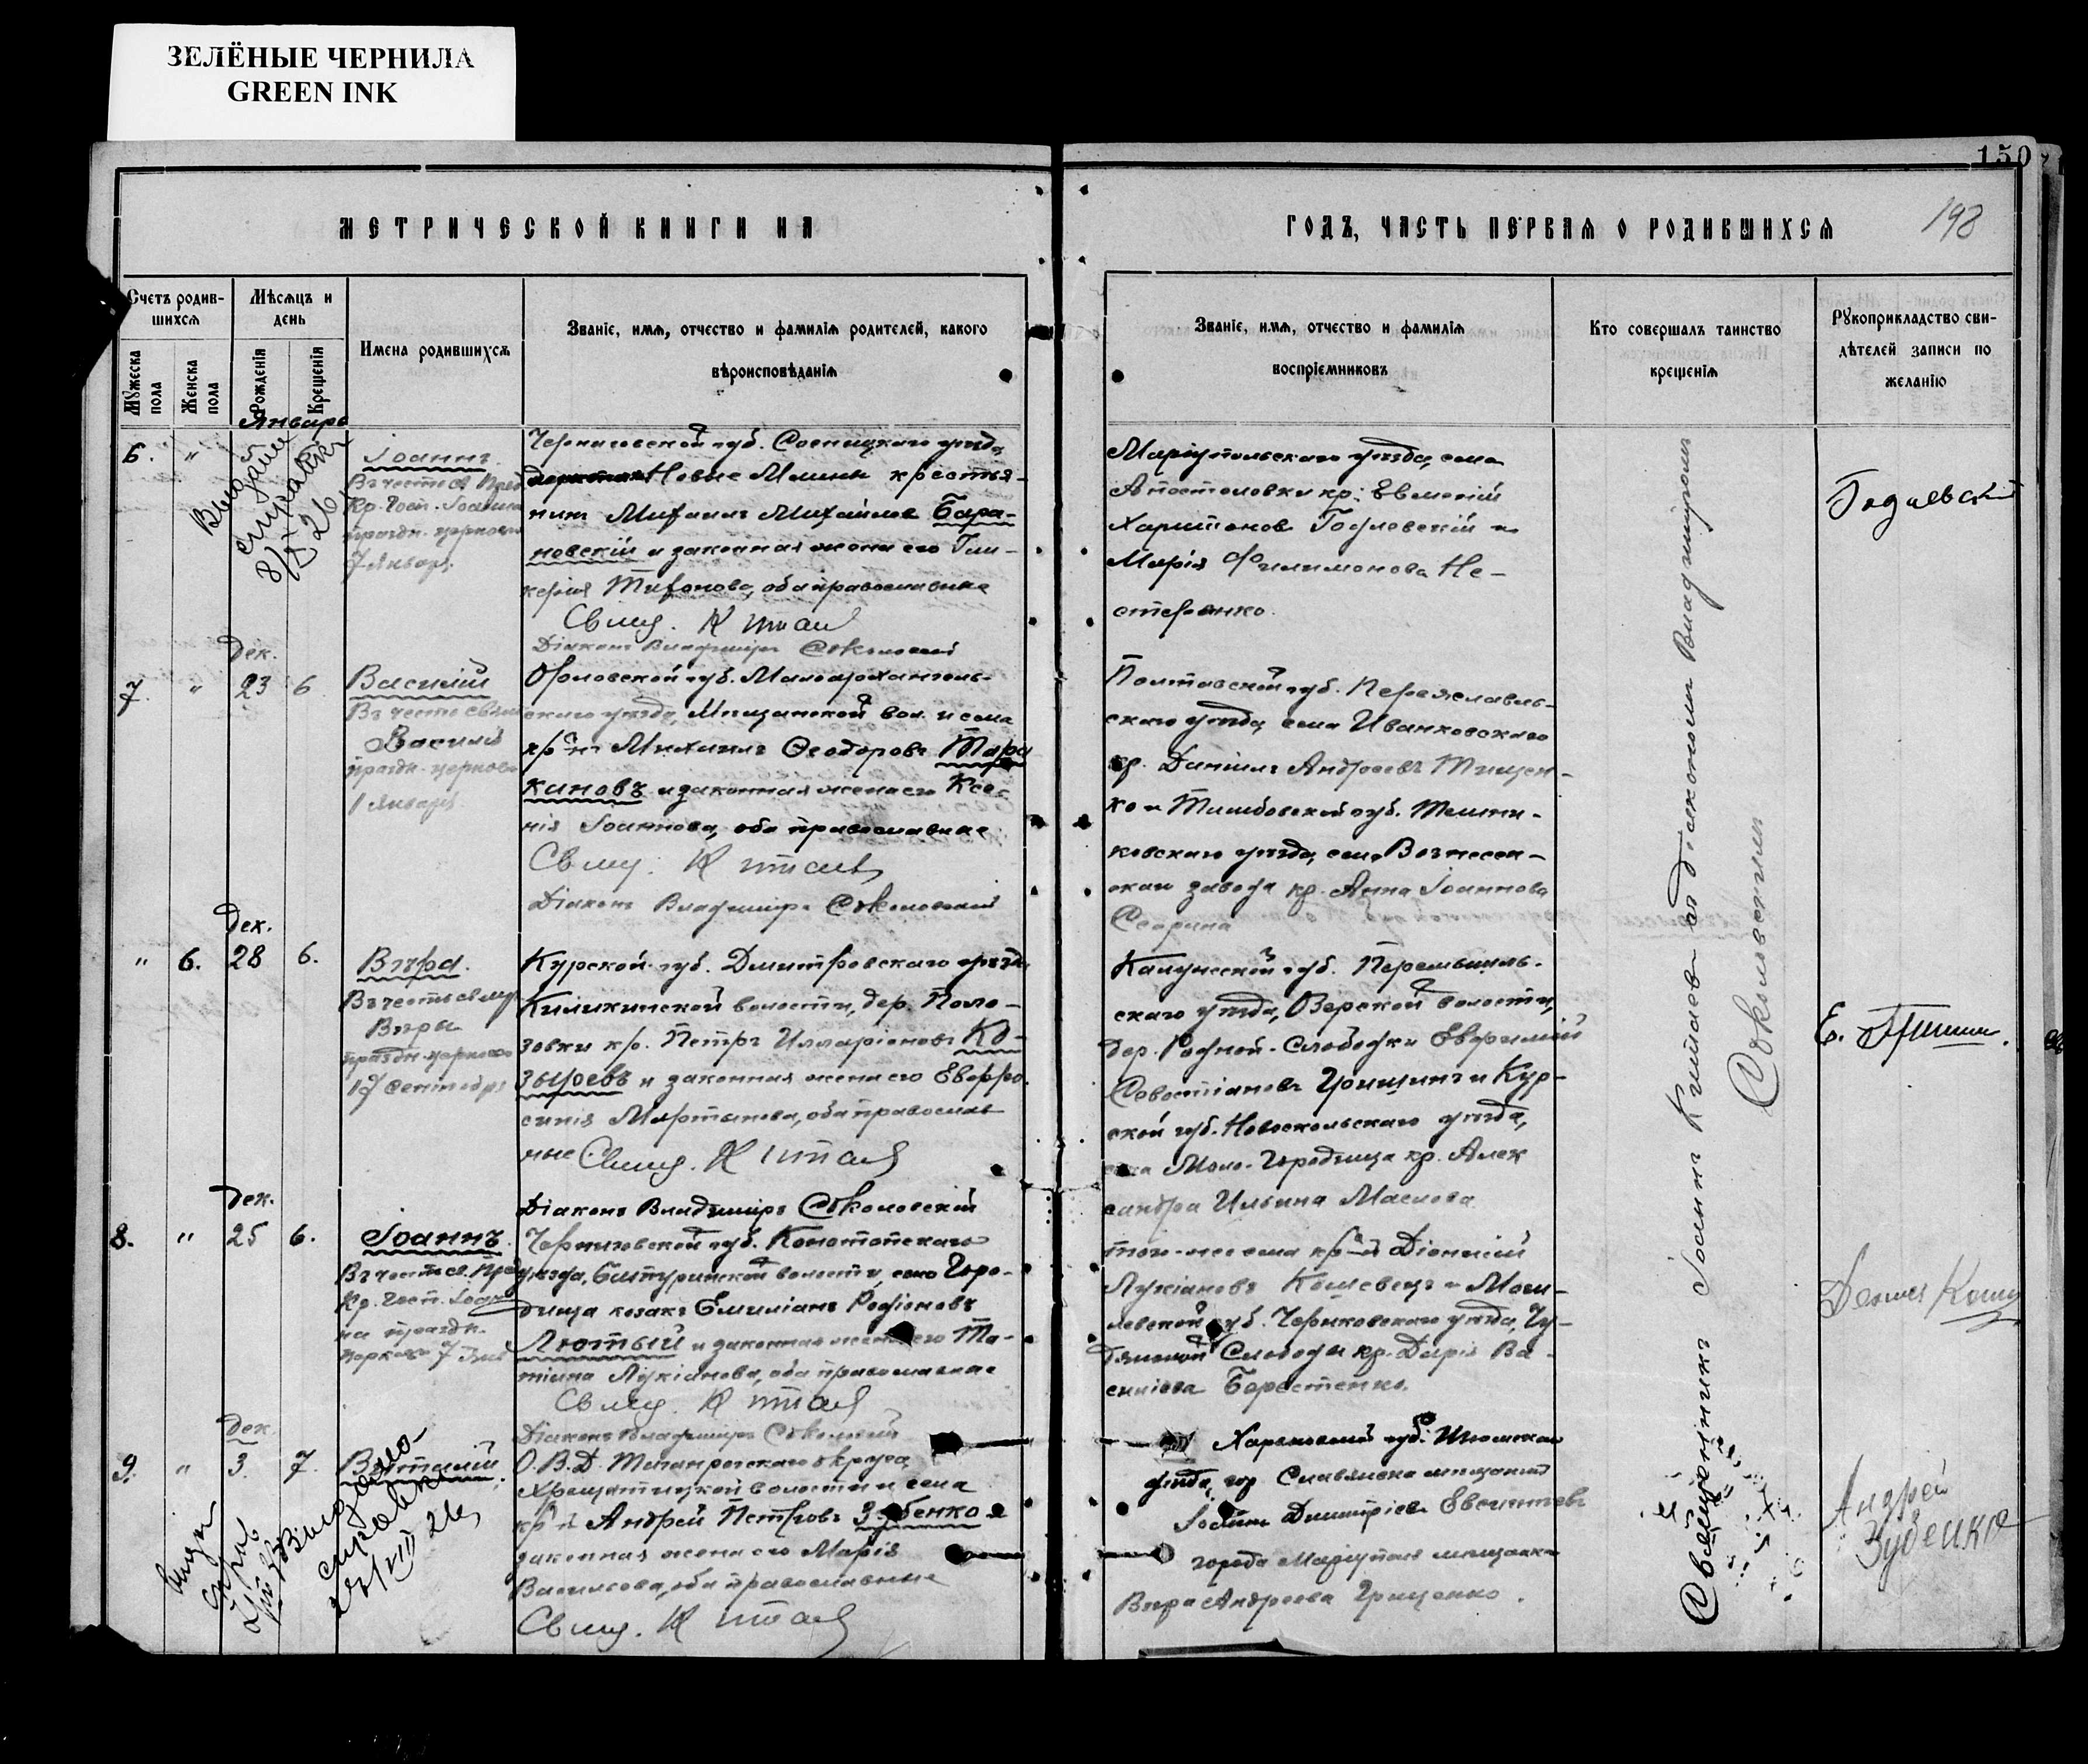 ЗЕЛЁНЫЕ ЧЕРНИЛА
GREEN INK
150
198
МЕТРИЧЕСКОЙ КНИГИ НА
ГОДЪ, ЧАСТЬ ПЕРВАЯ О РОДИВШИХСЯ
Счетъ родив-
шихся
Мѣсяцъ и
день
Мужеска
пола
Женска
пола
Рожденія
Крещенія
Имена родившихся
Званіе, имя, отчество и фамилія родителей, какого
вѣроисповѣданія
Званіе, имя, отчество и фамилія
воспріемниковъ
Кто совершалъ таинство
крещенія
Рукоприкладство сви-
дѣтелей записи по
желанію
Январь
6. "
Іоаннъ
Въ честь св. Пред
Кр. Госп. Іоанна
праздн. церковью
7 Января
Выдана
справка
8/IX 26
Черниговской губ. Сосницкаго уѣзда,
Новые Млины крестья-
нинъ Михаилъ Михайловъ Бара-
новскій и законная жена его Гли-
керія Тифонова, оба православные
Свящ. Китаев
Діаконъ Владиміръ Соколовскій
Маріупольскаго уѣзда, села
Апостоловки кр. Евменій
Харитонов и
Марія Филимонова Не-
стеренко.
Дек.
7 " 23 6
Василій
Въ честь свят
Василія
праздн. церков
1 Января
Орловской губ. Малоархангель-
скаго уѣзда, вол. и села
кр-нъ Михаилъ Ѳеодоровъ Тара
кановъ и законная жена его Ксе-
нія Іоаннова, оба православные
Свящ. Китаев
Діаконъ Владиміръ Соколовскій
Полтавской губ. Переяславль-
скаго уѣзда, села Иванковскаго
кр. Даніилъ Андреевъ Тищен-
ко и Тамбовской губ. Темни-
ковскаго уѣзда, села Вознесен-
скаго завода кр. Анна Іоаннова
Дек.
" 6. 28 6.
Вѣра.
Въ честь св муч
Вѣры
праздн. церковью
17 Сентября
Курской губ. Дмитровскаго уѣзда,
волости, дер. Поло-
зовки кр. Петръ Илларіоновъ Ко-
зыревъ и законная жена его Евфро-
синія Мартынова, оба православ
ные Свящ. Китаев
Діаконъ Владиміръ Соколовскій
Калужской губ. Перемышль-
скаго уѣзда, волости,
дер. Слободки Евфимій
Севостіановъ Гришинъ и Кур-
ской губ. Новоскольскаго уѣзда,
села Городища кр. Алек
сандра Ильина Маслова
Е. Гришин
Дек.
8. " 25 6.
Іоаннъ
Въ честь св. Пред
Кр. Госп. Іоан
на праздн.
церковью 7 Янв
Черниговской губ. Конотопскаго
уѣзда, Батуринской волости, села Горо-
дища козакъ Емиліанъ Родіоновъ
Лютый и законная жена его Та-
тіана Лукіанова, оба православные
Свящ. Китаев
Діаконъ Владиміръ Соколовскій
того-же села кр-нъ Діонисій
Лукіановъ и Моги-
левской губ. Чериковскаго уѣзда,
Слободы кр. Дарія Ва-
Берестенко.
Дек
9. " 3. 7.
Виталій
Выдана
справка
О.В.Д. Таганрогскаго округа,
волости и села
кр-нъ Андрей Петровъ Зубенко и
законная жена его Марія
Васильева, оба православные
Свящ. Китаев
Харьковской губ. Изюмскаго
уѣзда, гор. Славянска мѣщанинъ
Димитріев
города Маріуполя мѣщанка
Вѣра Андреева Грищенко.
Андрей
Зубенко
Священникъ Іоаннъ Китаевъ съ діакономъ Владиміромъ
Соколовскимъ